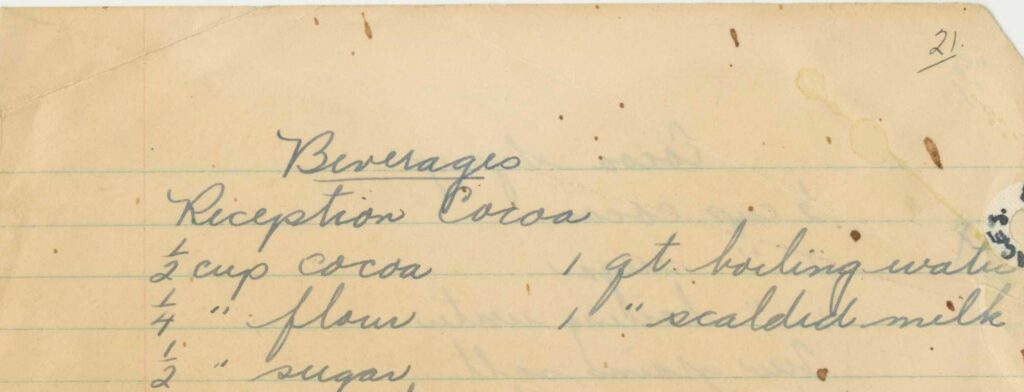 21.
Beverages
Reception Cocoa
½ cup cocoa 1 qt. boiling water
¼ " flour 1 " scalded milk
½ " sugar